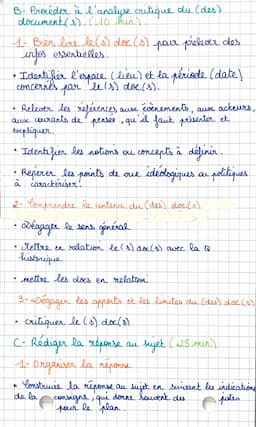 B- Procéder à l'analyse critique du (des)
document(s). (10 min)
1- Bien lire le(s) doc(s) pour prélever des
infos essentielles.
• Identifier l'espace (lieu) et la période (date)
concernés par le(s) doc(s).
• Relever les références aux évènements, aux acteurs,
aux courants de pensée, qu'il faut présenter et
expliquer.
• Identifier les notions ou concepts à définir.
• Repérer les points de vue idéologiques ou politiques
à caractériser.
2- Comprendre le contenu du (des) doc(s)
• Dégager le sens général
• Mettre en relation le(s) doc(s) avec la Q
historique.
• mettre les docs en relation
3- Dégager les apports et les limites du (des) doc(s)
• critiquer le(s) doc(s)
C- Rédiger la réponse au sujet (25 min)
1- Organiser la réponse
• Construire la réponse au sujet en suivant les indications
de la consigne, qui donne souvent des pistes
pour le plan.